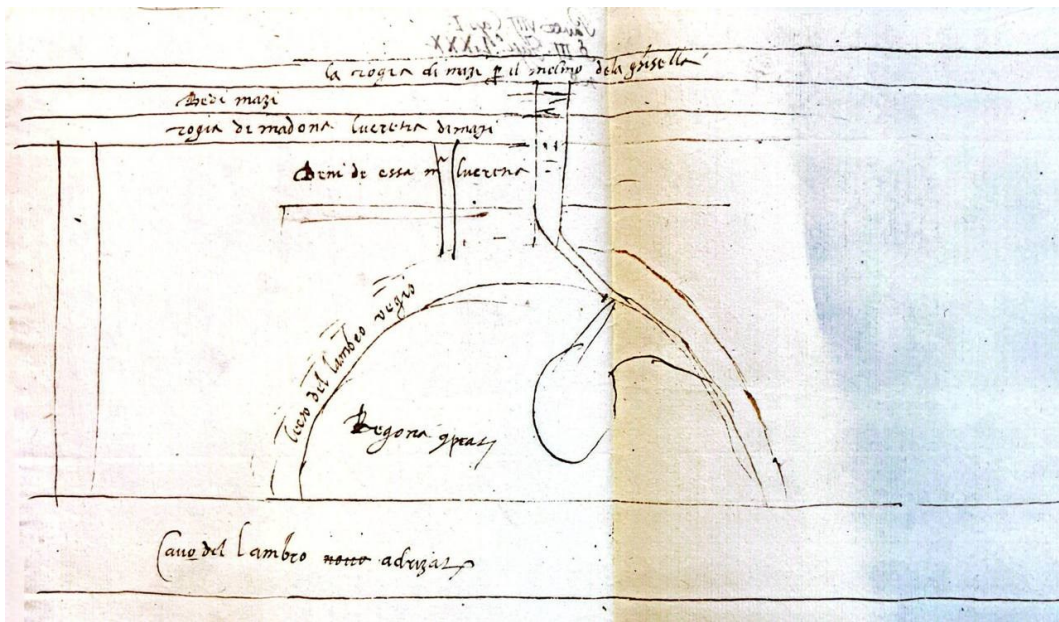 la rogia di mazi p il molino dela grisella
Beni mazi
rogia di madona lucretia di mazi
Beni de essa m lucretia
corso del lambro vegio
Cavo del lambro novo adrizat